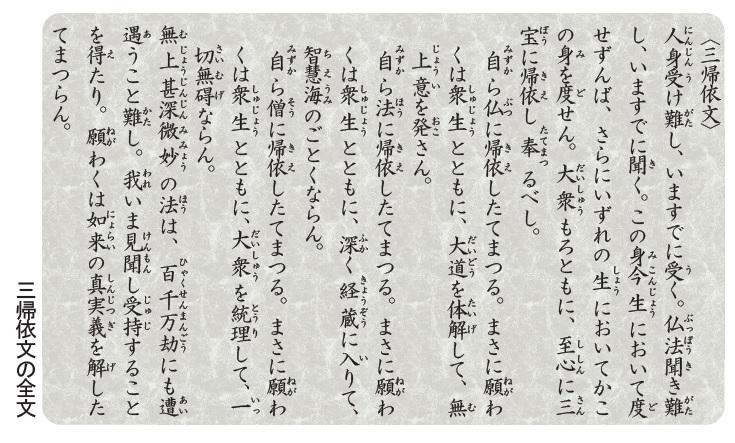 〈三帰依文〉
人身受け難し、いますでに受く。仏法聞き難
し、いますでに聞く。この身今生において度
せずんば、さらにいずれの生においてかこ
の身を度せん。大衆もろともに、至心に三
宝に帰依し奉るべし。
自ら仏に帰依したてまつる。まさに願わ
くは衆生とともに、大道を体解して、無
上意を発さん。
自ら法に帰依したてまつる。まさに願わ
くは衆生とともに、深く経蔵に入りて、
智慧海のごとくならん。
自ら僧に帰依したてまつる。まさに願わ
くは衆生とともに、大衆を統理して、一
切無碍ならん。
無上甚深微妙の法は、百千万劫にも遭
遇うこと難し。我いま見聞し受持すること
を得たり。願わくは如来の真実義を解した
てまつらん。
三帰依文の全文